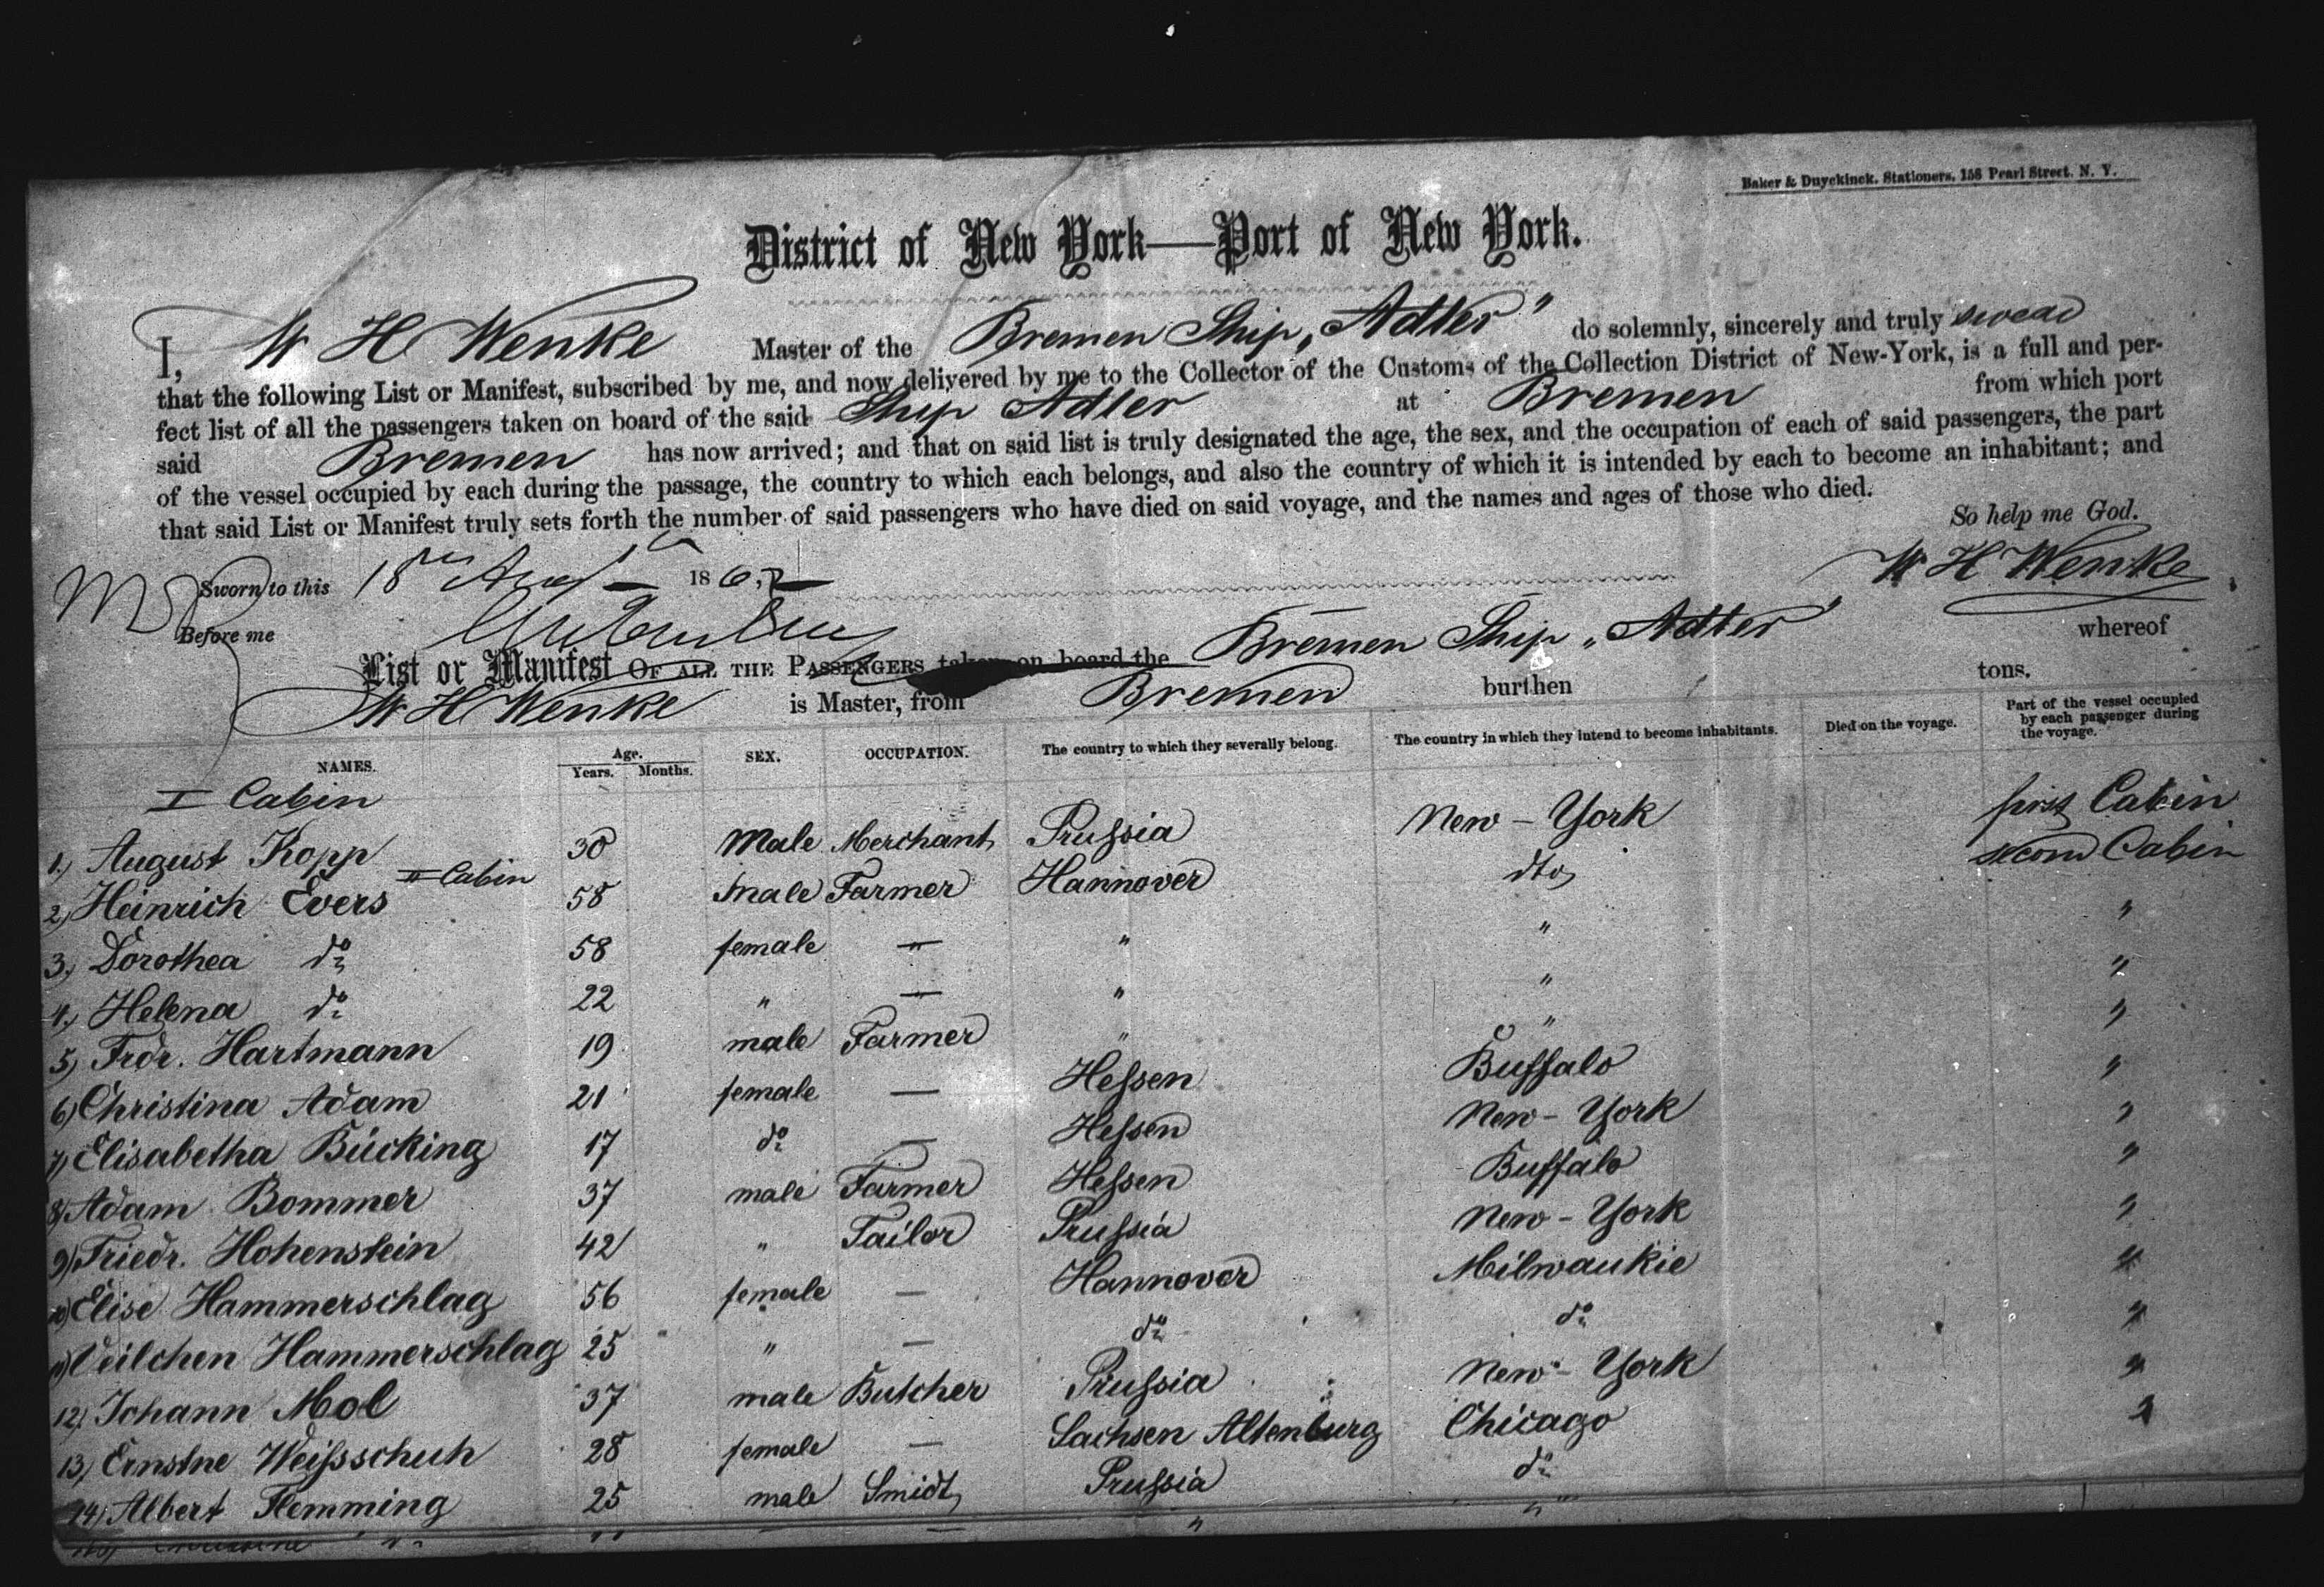 Baker & Duyckinck, Stationers, 158 Pearl Street, N. Y.
District of New York—Port of New York.
I, W H Wenke Master of the Bremen Ship „Adler" do solemnly, sincerely and truly swear
that the following List or Manifest, subscribed by me, and now delivered by me to the Collector of the Customs of the Collection District of New-York, is a full and per-
fect list of all the passengers taken on board of the said Ship Adler at Bremen from which port
said Bremen has now arrived; and that on said list is truly designated the age, the sex, and the occupation of each of said passengers, the part
of the vessel occupied by each during the passage, the country to which each belongs, and also the country of which it is intended by each to become an inhabitant; and
that said List or Manifest truly sets forth the number of said passengers who have died on said voyage, and the names and ages of those who died.
So help me God.
Sworn to this 18 Aug 1862 W H Wenke
Before me
List or Manifest OF ALL THE PASSENGERS taken on board the Bremen Ship „Adler" whereof
W H Wenke is Master, from Bremen burthen tons.
NAMES. Age. Years. Months. SEX. OCCUPATION. The country to which they severally belong. The country in which they intend to become inhabitants. Died on the voyage. Part of the vessel occupied by each passenger during the voyage.
I Cabin
1.) August Kopp 30 Male Merchant Prussia New-York first Cabin
II Cabin
2) Heinrich Evers 58 male Farmer Hannover dto second Cabin
3) Dorothea do 58 female — " " "
4) Helena do 22 " — " " "
5) Frdr. Hartmann 19 male Farmer " " "
6) Christina Adam 21 female — Hessen Buffalo "
7) Elisabetha Bücking 17 do — Hessen New-York "
8) Adam Bommer 37 male Farmer Hessen Buffalo "
9) Friedr. Hohenstein 42 " Tailor Prussia New-York "
10) Elise Hammerschlag 56 female — Hannover Milwaukie "
11) Veilchen Hammerschlag 25 " — do do "
12) Johann Mol 37 male Butcher Prussia New-York "
13) Ernstne Weissschuh 28 female — Sachsen Altenburg Chicago "
14) Albert Flemming 25 male Smidt Prussia do